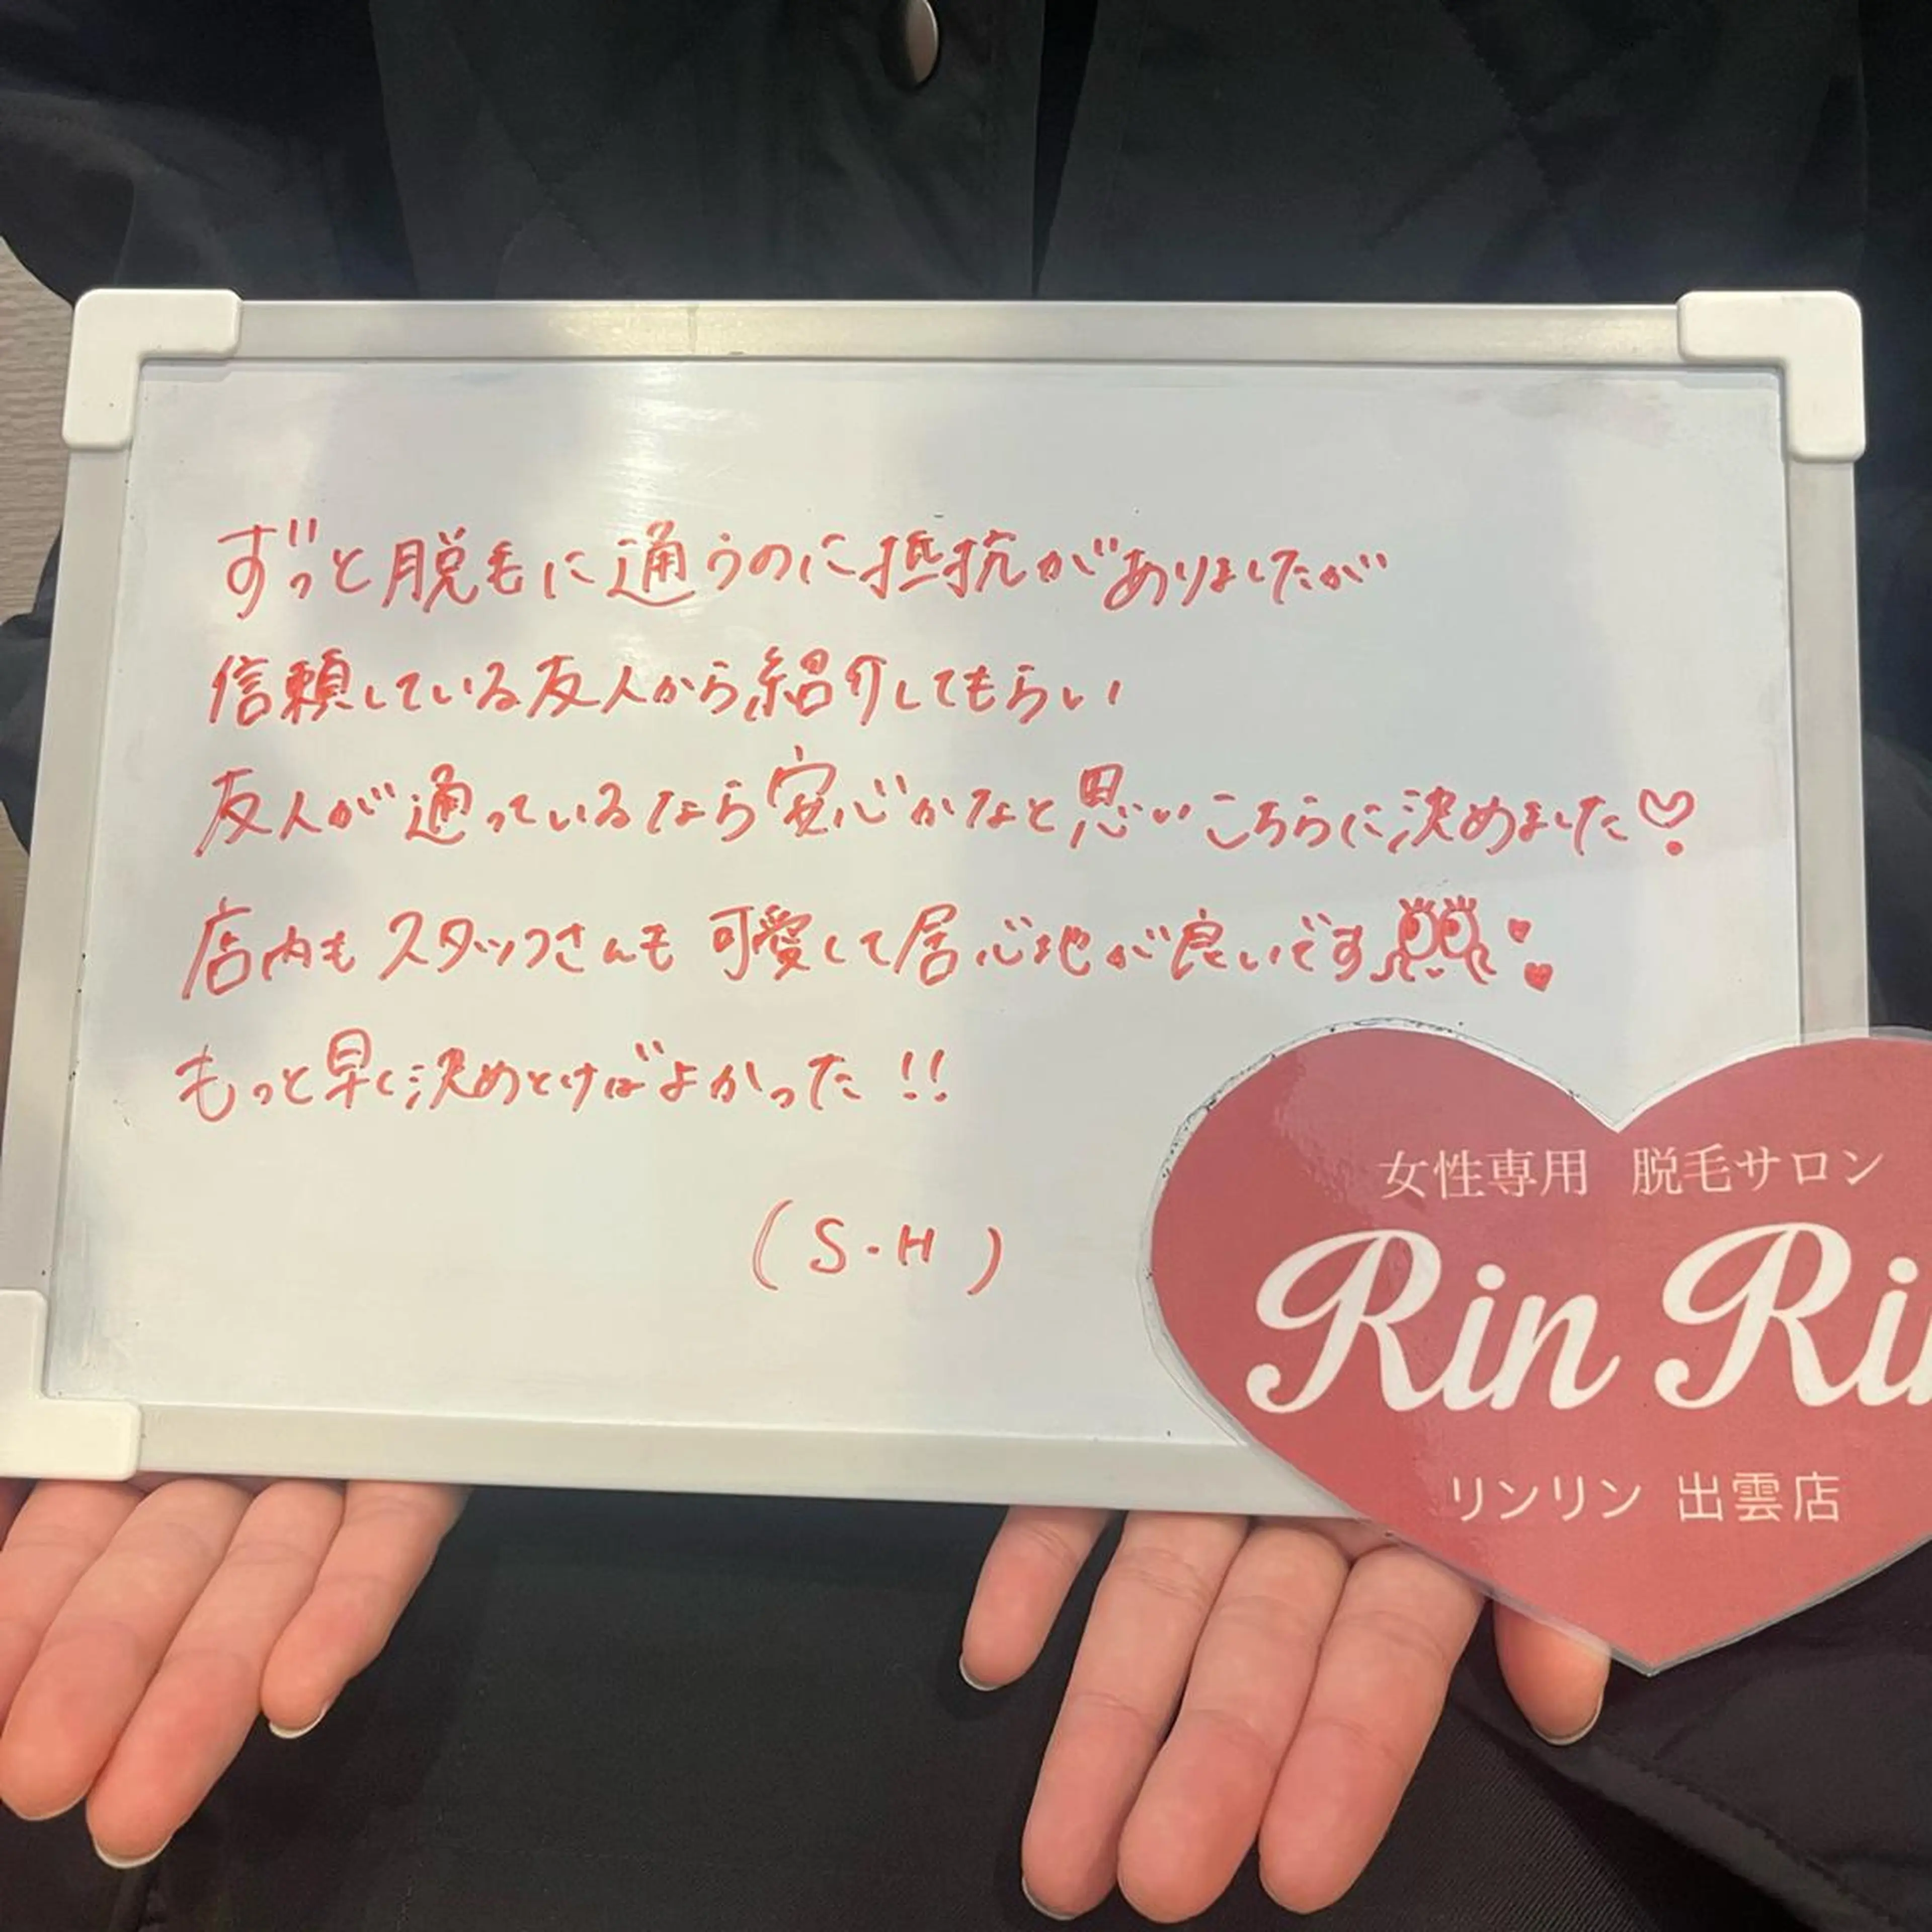 ずっと脱毛に通うのに抵抗がありましたが
信頼している友人から紹介してもらい
友人が通っているなら安心かなと思いこちらに決めました♡
店内もスタッフさんも可愛して居心地が良いです
もっと早く決めとけばよかった!!
(S.H)
女性専用 脱毛サロン
Rin Ri
リンリン 出雲店